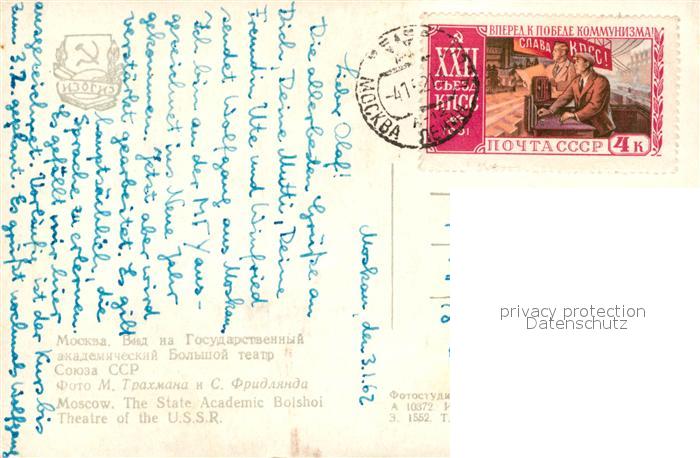 Moskau, den 3.1.62
Lieber Olaf!
Die allerbesten Grüße an
Dich, Deine Mutti, Deine
Freundin Ute und Winfried
sendet Wolfgang aus Moskau.
Ich bin an der MGY aus-
gezeichnet ins Neue Jahr
gekommen. Jetzt aber wird
verstärkt gearbeitet. Es gilt
hauptsächlich, die
Sprache zu erlernen.
Es gefällt mir hier
ausgezeichnet. Vorläufig ist der Kurs bis
zum 3.2. geplant. Es grüßt nochmals Wolfgang
Москва. Вид на Государственный
академический Большой театр
Союза ССР
Фото М. Трахмана и С. Фридлянда
Moscow. The State Academic Bolshoi
Theatre of the U.S.S.R.
Фотостуди
А 10372. И
З. 1552. Т.
МОСКВА
-4.1.62
ВПЕРЕД К ПОБЕДЕ КОММУНИЗМА!
СЛАВА КПСС!
XXII
СЪЕЗД
КПСС
ПОЧТА СССР 4к
privacy protection
Datenschutz